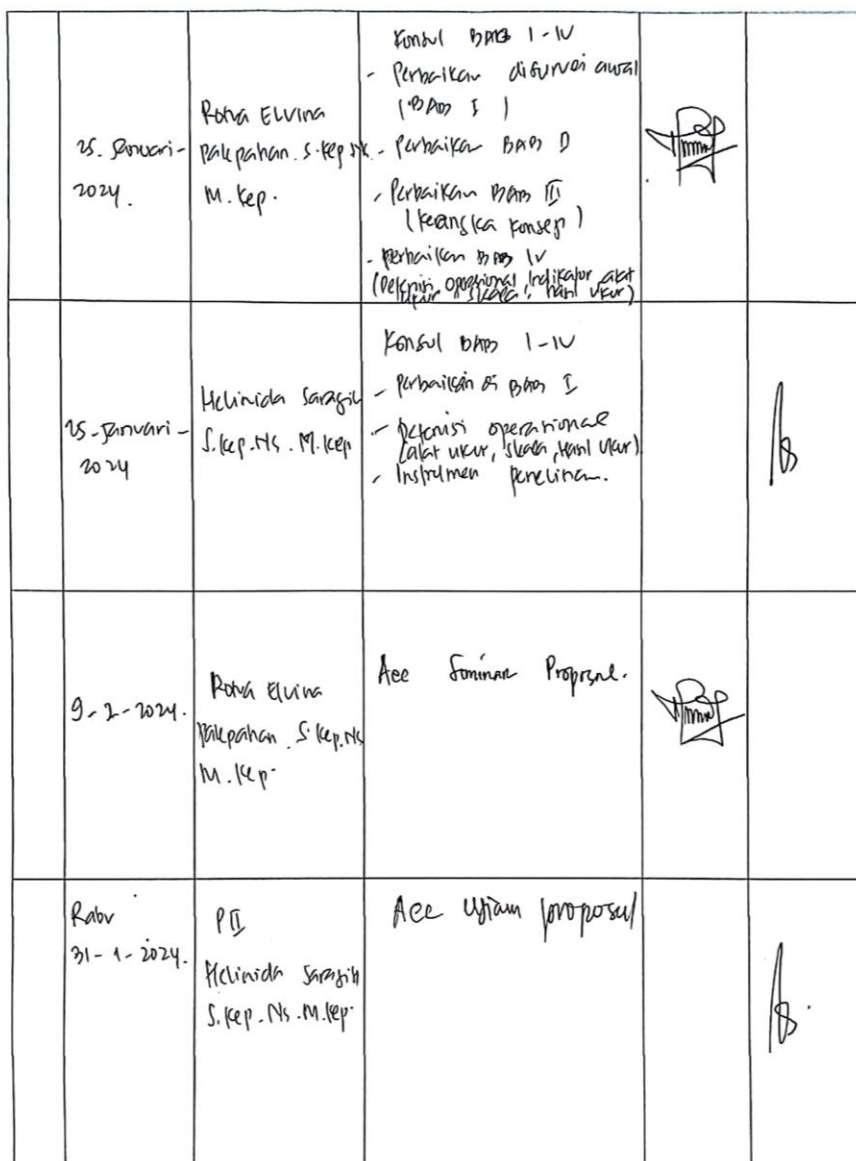 25. Januari-
2024.
Rotua Elvina
Pakpahan. S.Kep.Ns
M. Kep.
Konsul BAB I-IV
- Perbaikan disurvei awal
(BAB I)
- Perbaikan BAB II
- Perbaikan BAB III
(Kerangka Konsep)
- perbaikan BAB IV
(Defenisi operasional, Indikator, alat
ukur, skala, hasil ukur)
25-Januari-
2024
Helinida Saragih
S.Kep.Ns. M.Kep
Konsul BAB I-IV
- Perbaikan di BAB I
- Defenisi operasional
(alat ukur, skala, Hasil Ukur)
- Instrumen penelitian.
9-2-2024.
Rotua Elvina
Pakpahan. S.Kep.Ns
M.Kep.
Acc Seminar Proposal.
Rabu
31-1-2024.
P II
Helinida Saragih
S.Kep.Ns.M.Kep.
Acc Ujian proposal